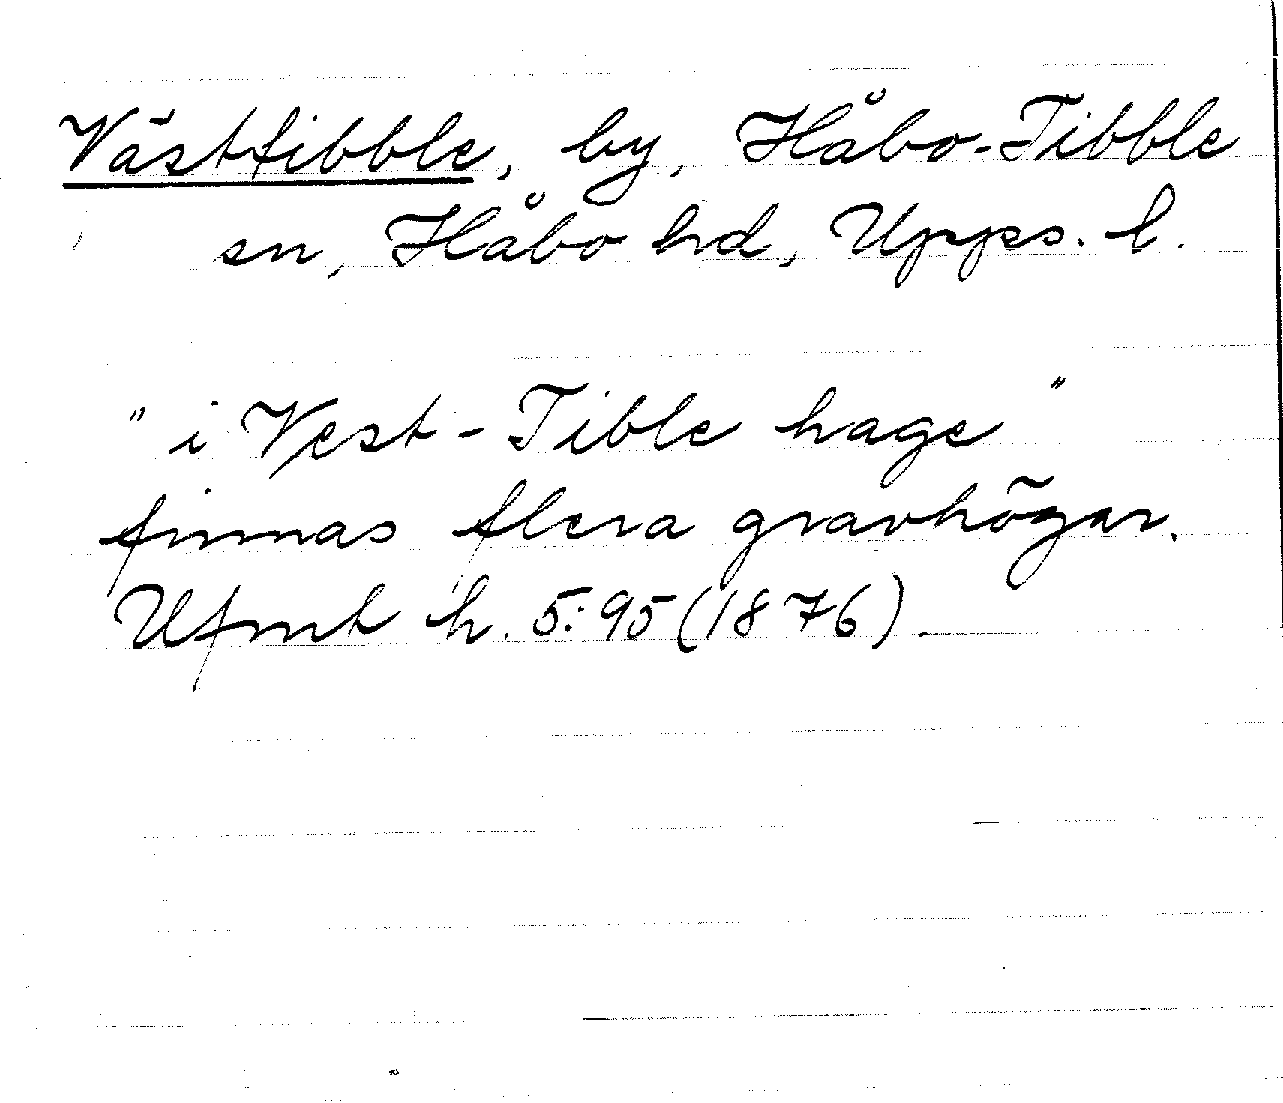 Västtibble, by, Håbo-Tibble
sn, Håbo hd, Upps. l.
"i Vest-Tible hage"
finnas flera gravhögar.
Ufmt h. 5:95 (1876).